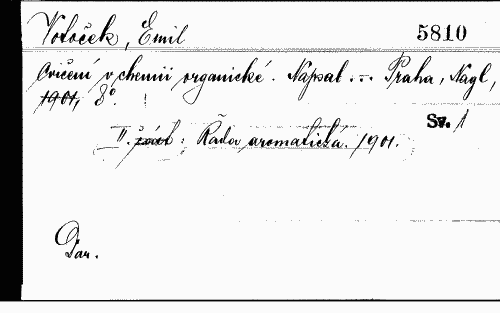 Votoček, Emil 5810
Cvičení v chemii organické. Napsal ... Praha, Nagl,
1901, 8°.
Sv. 1
II. část: Řada aromatická. 1901.
Dar.